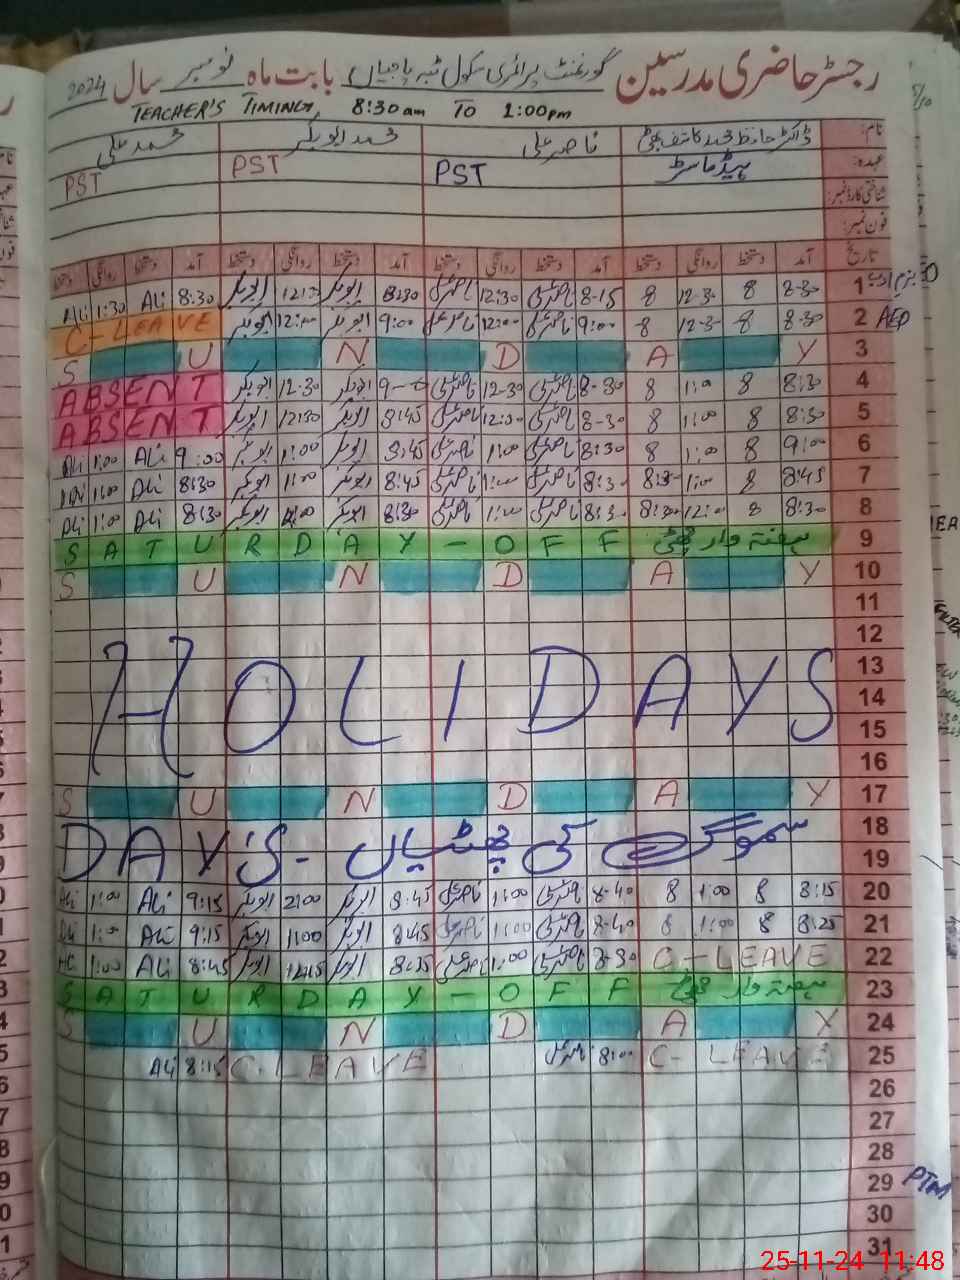 رجسٹر حاضری مدرسین گورنمنٹ پرائمری سکول ٹبہ باجیاں بابت ماہ نومبر سال 2024
TEACHER'S TIMING 8:30 am TO 1:00pm
نام: ڈاکٹر حافظ محمد کاشف بھٹی ناصر علی محمد ابوبکر محمد علی
عہدہ: ہیڈ ماسٹر PST PST PST
شناختی کارڈ نمبر:
فون نمبر:
تاریخ آمد دستخط روانگی دستخط آمد دستخط روانگی دستخط آمد دستخط روانگی دستخط آمد دستخط روانگی دستخط
1 8-30 8 12-30 8 8-15 ناصر علی 12:30 ناصر علی 8:30 ابوبکر 12:30 ابوبکر 8:30 Ali 1:30 Ali
2 8:30 8 12-30 8 9:00 ناصر علی 12:00 ناصر علی 9:00 ابوبکر 12:00 ابوبکر C-LEAVE AEO
3 S U N D A Y
4 8:30 8 1:00 8 8-30 ناصر علی 12-30 ناصر علی 9-00 ابوبکر 12-30 ابوبکر ABSENT
5 8:30 8 1:00 8 8-30 ناصر علی 12:30 ناصر علی 8:45 ابوبکر 12:30 ابوبکر ABSENT
6 9:00 8 1:00 8 8:30 ناصر علی 1:00 ناصر علی 8:45 ابوبکر 1:00 ابوبکر 9:00 Ali 1:00 Ali
7 8:45 8 1:00 8:30 ناصر علی 1:00 ناصر علی 8:45 ابوبکر 1:00 ابوبکر 8:30 Ali 1:00 Ali
8 8:30 8 12:00 8:30 ناصر علی 1:00 ناصر علی 8:30 ابوبکر ابوبکر 8:30 Ali 1:00 Ali
9 SATURDAY-OFF ہفتہ وار چھٹی
10 S U N D A Y
11
12
13
HOLIDAYS
14
15
16
17 S U N D A Y
18
DAY'S - سموگ کی چھٹیاں
19
20 8:15 8 1:00 8 8-40 ناصر علی 1:00 ناصر علی 8:45 ابوبکر 2:00 ابوبکر 9:15 Ali 1:00 Ali
21 8:25 8 1:00 8 8-40 ناصر علی 1:00 ناصر علی 8:45 ابوبکر 1:00 ابوبکر 9:15 Ali 1:00 Ali
22 C-LEAVE 8-30 ناصر علی 1:00 ناصر علی ابوبکر ابوبکر 8:45 Ali 1:00
23 SATURDAY-OFF ہفتہ وار چھٹی
24 S U N D A Y
25 C-LEAVE 8:00 ناصر علی C.LEAVE 8:15 Ali
26
27
28
29 PTM
30
31
25-11-24 11:48